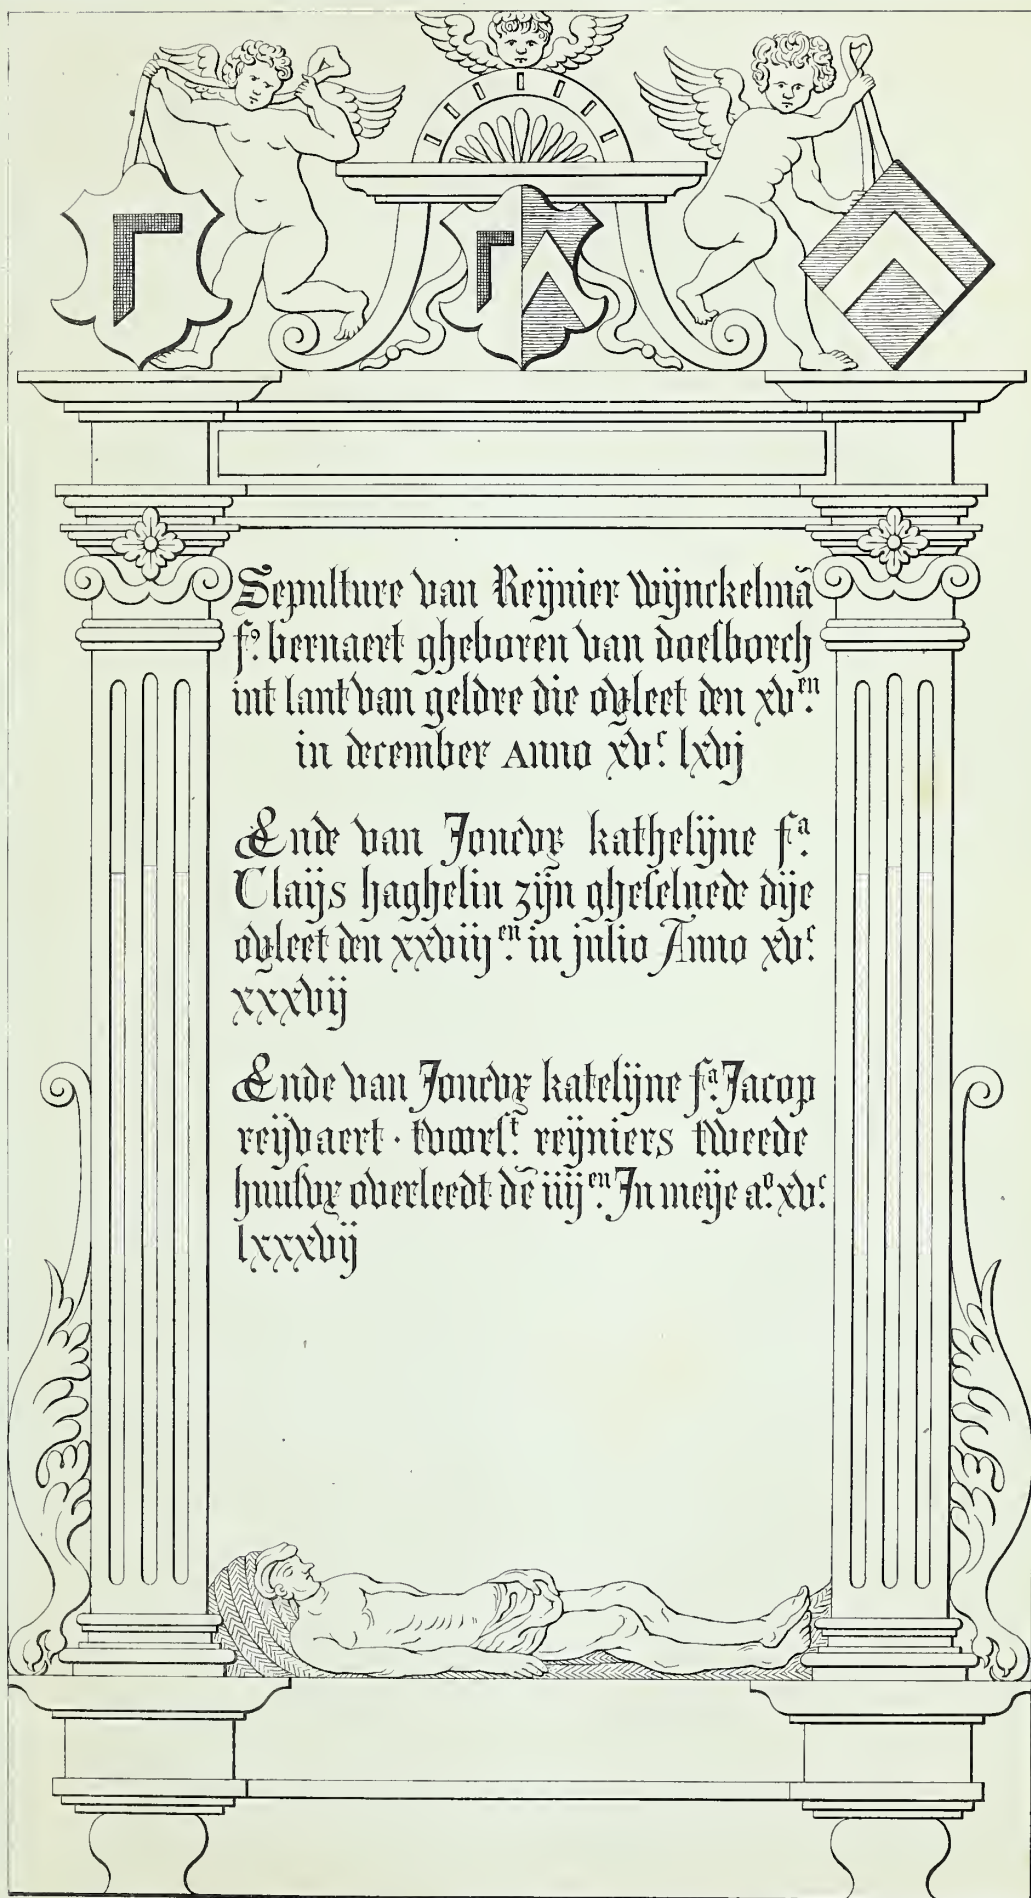 Sepulture van Reijnier wijnckelmã
fº. bernaert gheboren van doesborch
int lant van geldre die ov̄leet den xv.en
in december Anno xv.c lxvj
Ende van Joncvr kathelijne f.a
Claijs haghelin zijn gheselnede dije
ov̄leet den xxviij.en in julio Anno xv.c
xxxvij
Ende van Joncvr katelijne f.a Jacop
reijvaert · reijniers tweede
huusvr overleedt dẽ iiij.en In meije a.o xv.c
lxxxvij